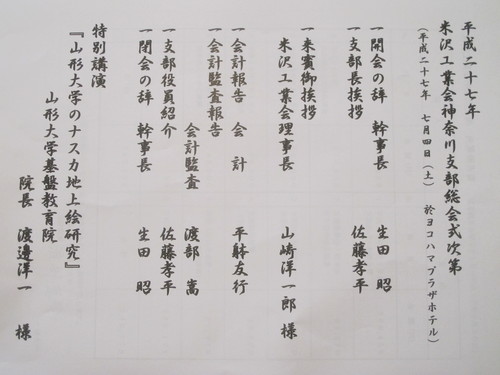 平成二十七年
米沢工業会神奈川支部総会式次第
(平成二十七年 七月四日(土) 於ヨコハマプラザホテル)
一開会の辞 幹事長 生田 昭
一支部長挨拶 佐藤孝平
一来賓御挨拶
米沢工業会理事長 山崎洋一郎 様
一会計報告 会 計 平躰友行
一会計監査報告
会計監査 渡部 嵩
一支部役員紹介 佐藤孝平
一閉会の辞 幹事長 生田 昭
特別講演
『山形大学のナスカ地上絵研究』
山形大学基盤教育院
院長 渡邊洋一 様